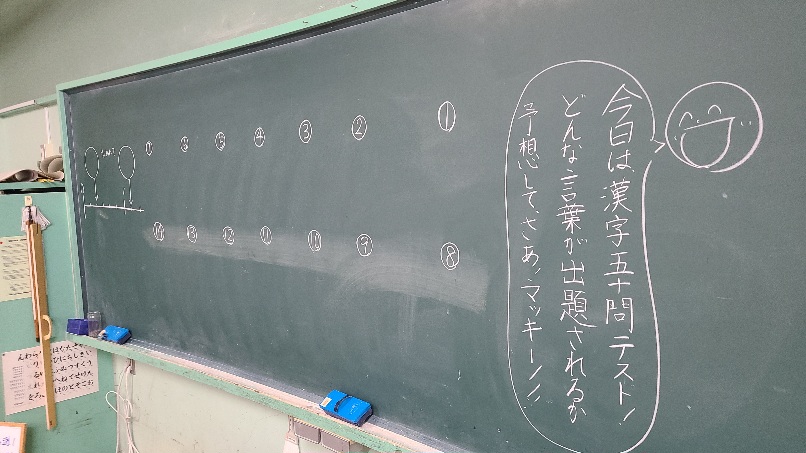 今日は、漢字五十問テスト!
どんな言葉が出題されるか
予想して、さあッマッキーノ!!
①
②
③
④
⑤
⑥
⑦
⑧
⑨
⑩
⑪
⑫
⑬
⑭